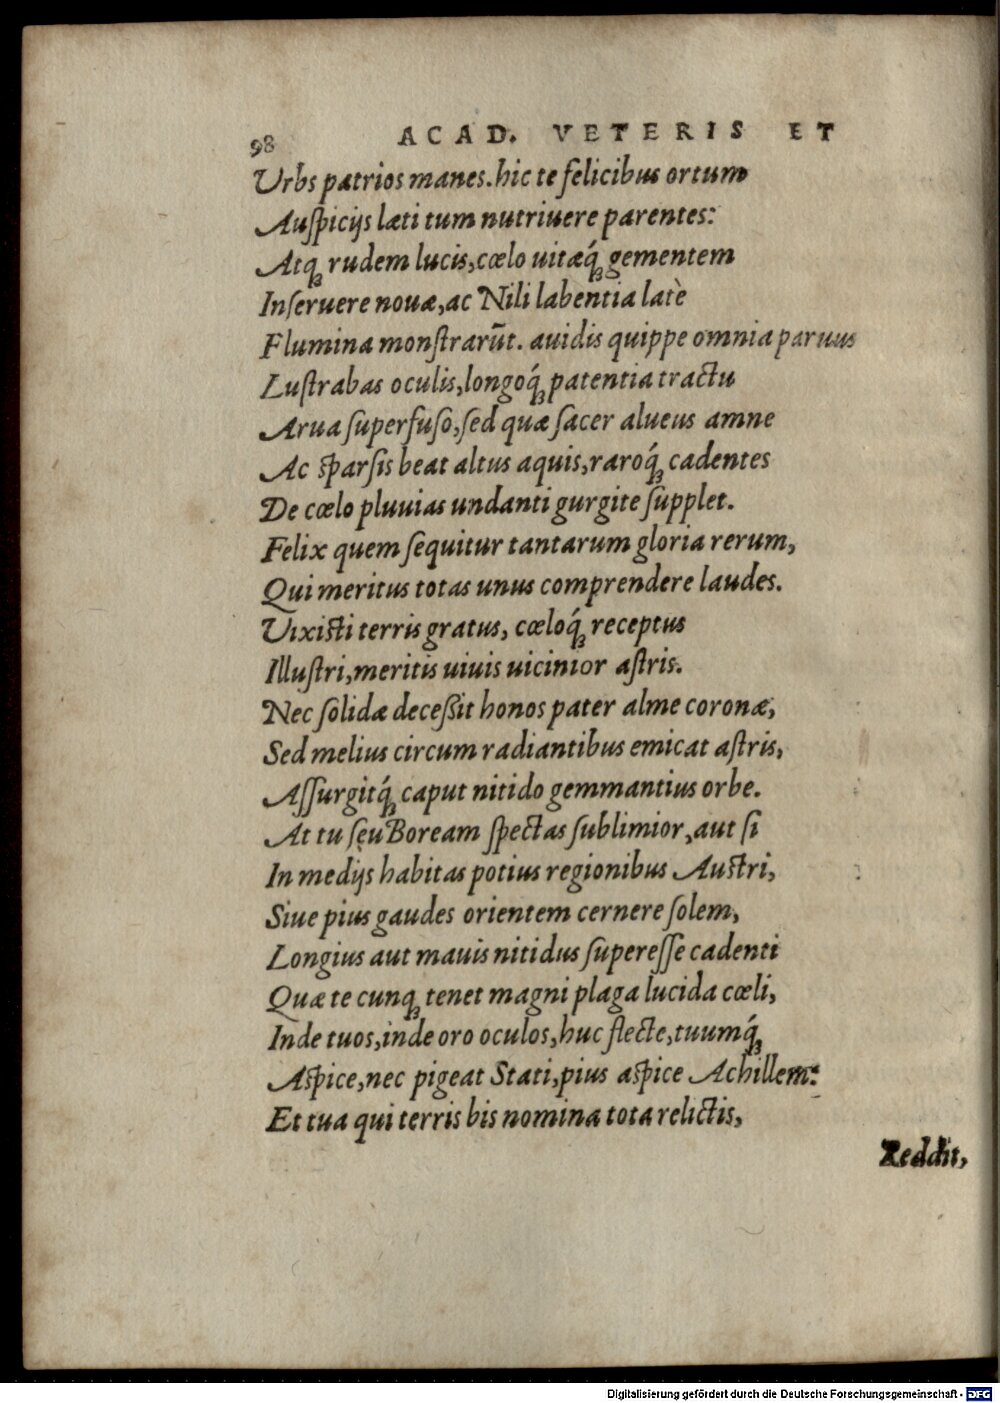 98 ACAD. VETERIS ET
Urbs patrios manes. hic te felicibus ortum
Auſpicijs læti tum nutriuere parentes:
Atq; rudem lucis, cœlo uitæq́; gementem
Inſeruere nouæ, ac Nili labentia latè
Flumina monſtrarũt. auidis quippe omnia paruus
Luſtrabas oculis, longoq́; patentia tractu
Arua ſuperfuſo, ſed quæ ſacer alueus amne
Ac ſparſis beat altus aquis, raroq́; cadentes
De cœlo pluuias undanti gurgite ſupplet.
Felix quem ſequitur tantarum gloria rerum,
Qui meritus totas unus comprendere laudes.
Vixiſti terris gratus, cœloq́; receptus
Illuſtri, meritis uiuis uicinior aſtris.
Nec ſolidæ deceßit honos pater alme coronæ,
Sed melius circum radiantibus emicat aſtris,
Aſſurgitq́; caput nitido gemmantius orbe.
At tu ſeu Boream ſpectas ſublimior, aut ſi
In medijs habitas potius regionibus Auſtri,
Siue pius gaudes orientem cernere ſolem,
Longius aut mauis nitidus ſupereſſe cadenti
Quæ te cunq; tenet magni plaga lucida cœli,
Inde tuos, inde oro oculos, huc flecte, tuumq́;
Aſpice, nec pigeat Stati, pius aſpice Achillem:
Et tua qui terris bis nomina tota relictis,
Reddit,
Digitalisierung gefördert durch die Deutsche Forschungsgemeinschaft - DFG